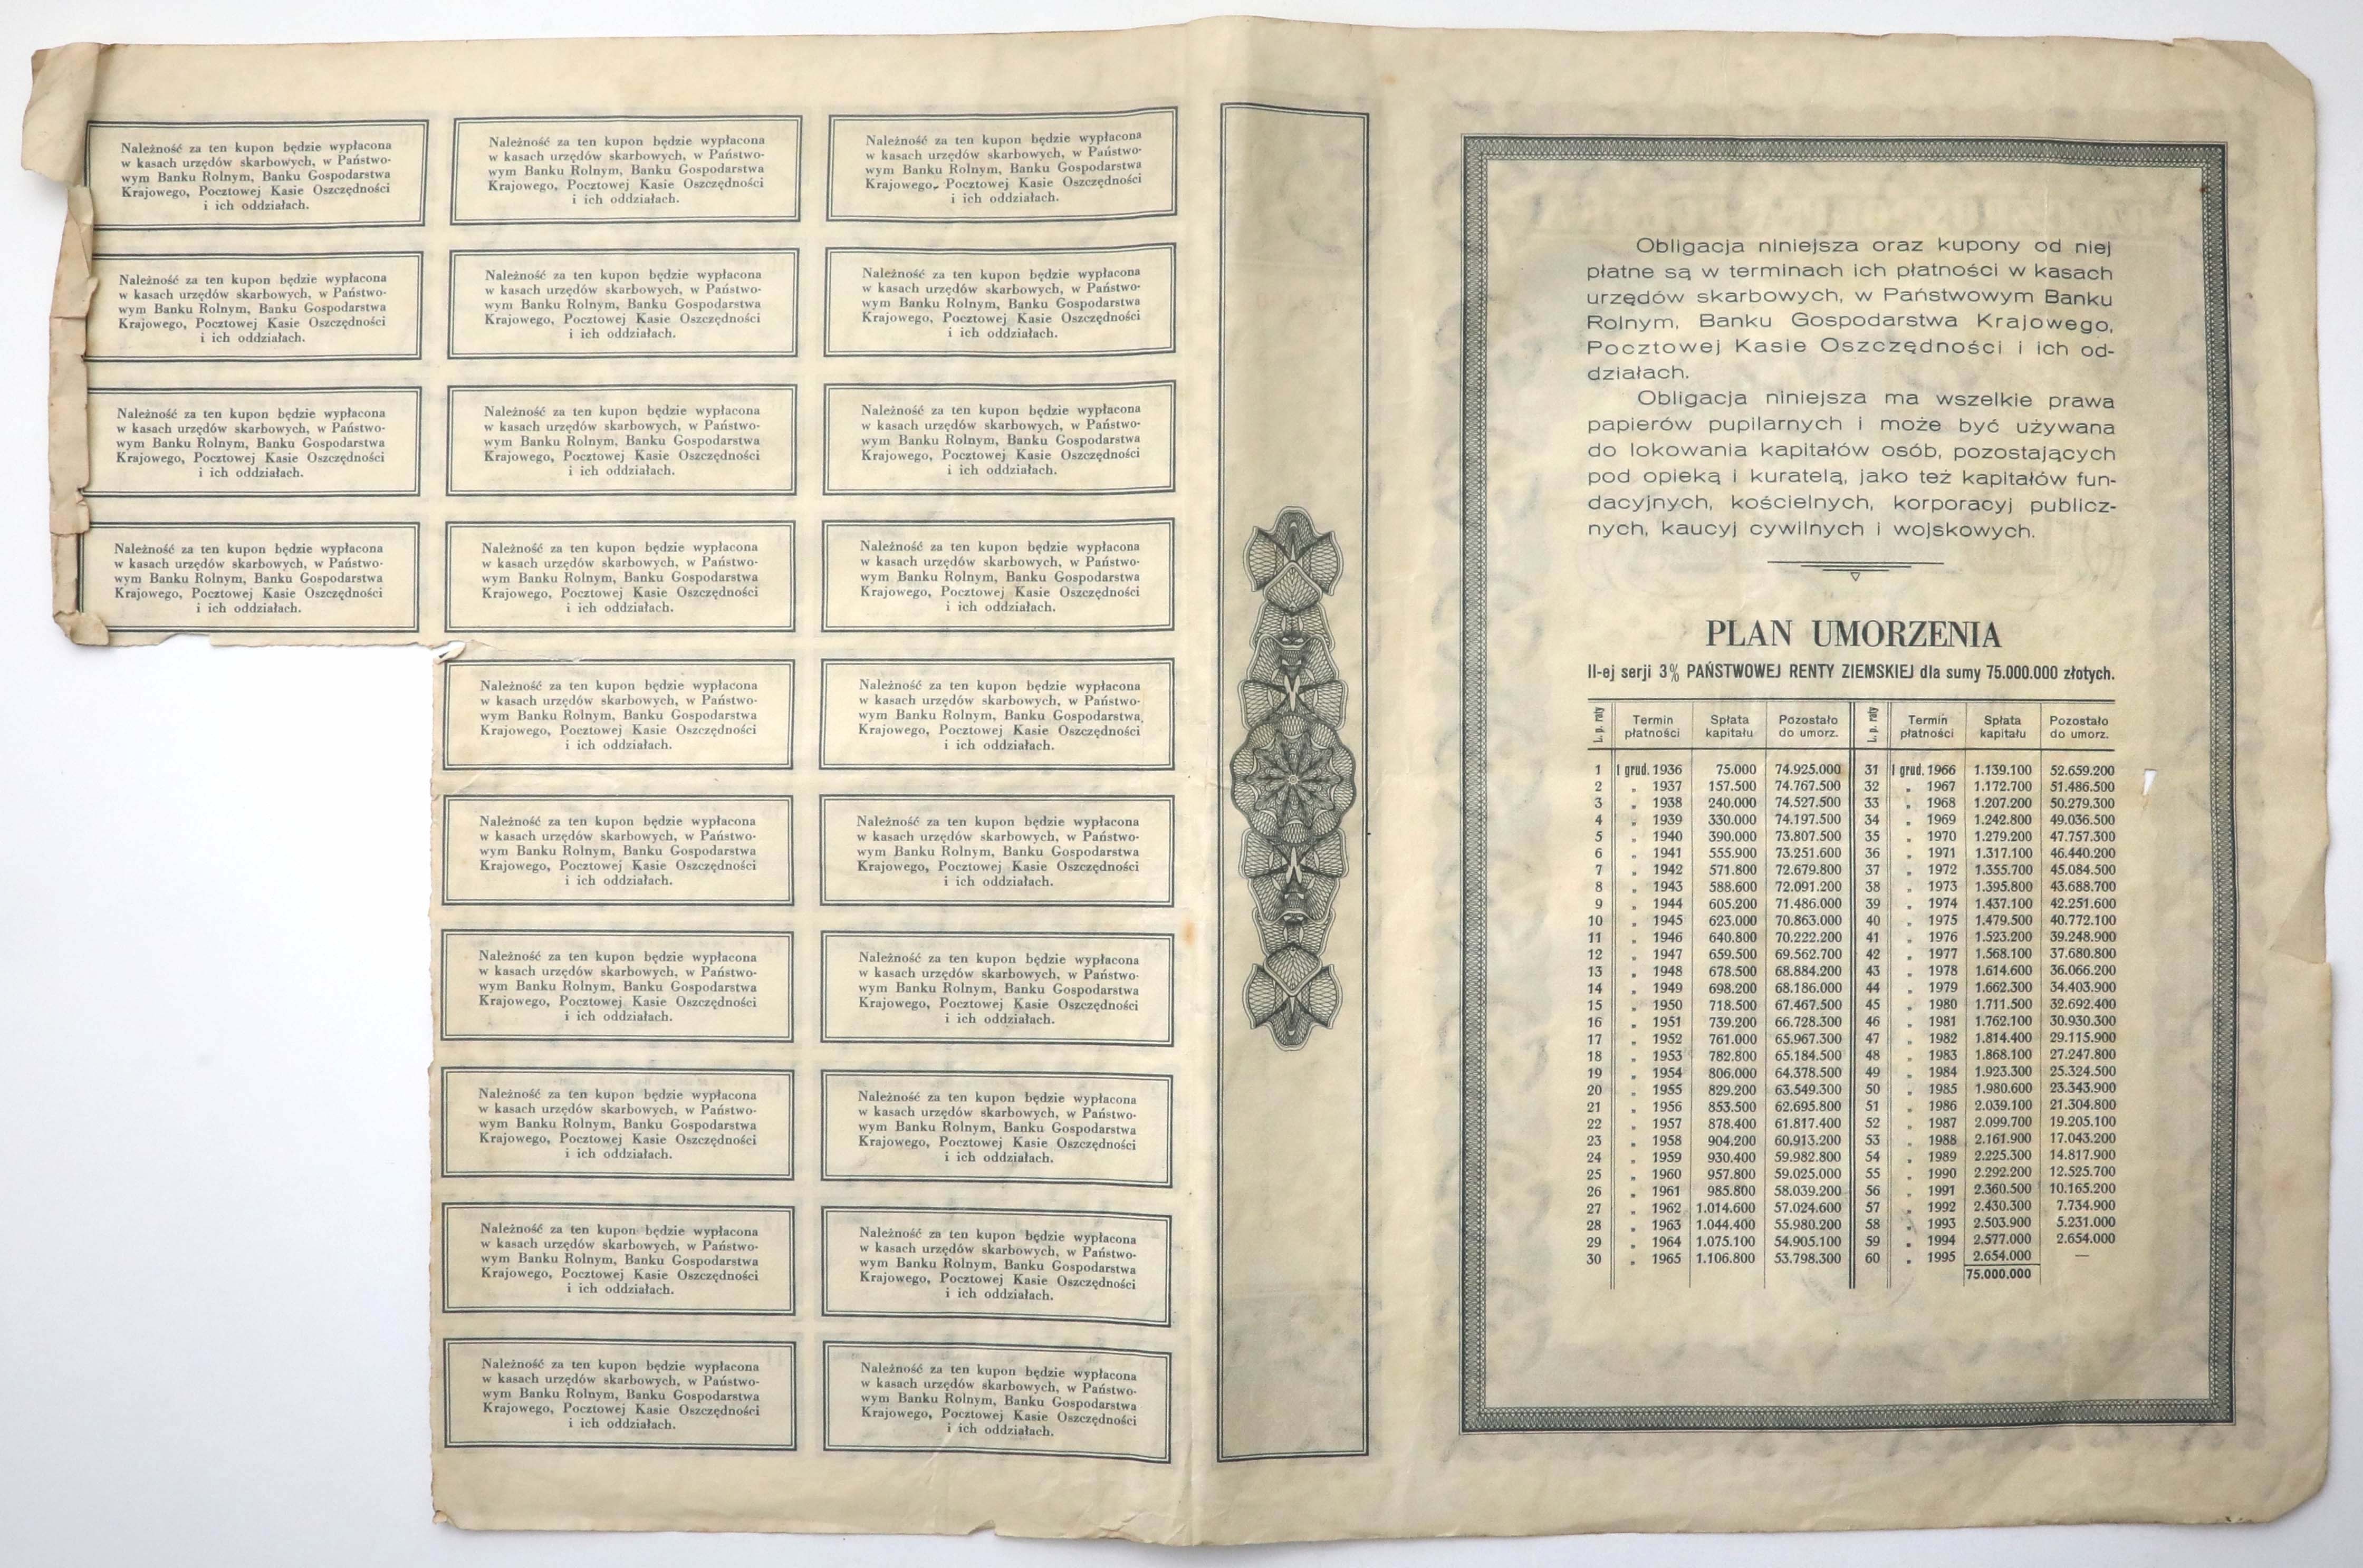 Należność za ten kupon będzie wypłacona
w kasach urzędów skarbowych, w Państwo-
wym Banku Rolnym, Banku Gospodarstwa
Krajowego, Pocztowej Kasie Oszczędności
i ich oddziałach.
Należność za ten kupon będzie wypłacona
w kasach urzędów skarbowych, w Państwo-
wym Banku Rolnym, Banku Gospodarstwa
Krajowego, Pocztowej Kasie Oszczędności
i ich oddziałach.
Należność za ten kupon będzie wypłacona
w kasach urzędów skarbowych, w Państwo-
wym Banku Rolnym, Banku Gospodarstwa
Krajowego, Pocztowej Kasie Oszczędności
i ich oddziałach.
Należność za ten kupon będzie wypłacona
w kasach urzędów skarbowych, w Państwo-
wym Banku Rolnym, Banku Gospodarstwa
Krajowego, Pocztowej Kasie Oszczędności
i ich oddziałach.
Należność za ten kupon będzie wypłacona
w kasach urzędów skarbowych, w Państwo-
wym Banku Rolnym, Banku Gospodarstwa
Krajowego, Pocztowej Kasie Oszczędności
i ich oddziałach.
Należność za ten kupon będzie wypłacona
w kasach urzędów skarbowych, w Państwo-
wym Banku Rolnym, Banku Gospodarstwa
Krajowego, Pocztowej Kasie Oszczędności
i ich oddziałach.
Należność za ten kupon będzie wypłacona
w kasach urzędów skarbowych, w Państwo-
wym Banku Rolnym, Banku Gospodarstwa
Krajowego, Pocztowej Kasie Oszczędności
i ich oddziałach.
Należność za ten kupon będzie wypłacona
w kasach urzędów skarbowych, w Państwo-
wym Banku Rolnym, Banku Gospodarstwa
Krajowego, Pocztowej Kasie Oszczędności
i ich oddziałach.
Należność za ten kupon będzie wypłacona
w kasach urzędów skarbowych, w Państwo-
wym Banku Rolnym, Banku Gospodarstwa
Krajowego, Pocztowej Kasie Oszczędności
i ich oddziałach.
Należność za ten kupon będzie wypłacona
w kasach urzędów skarbowych, w Państwo-
wym Banku Rolnym, Banku Gospodarstwa
Krajowego, Pocztowej Kasie Oszczędności
i ich oddziałach.
Należność za ten kupon będzie wypłacona
w kasach urzędów skarbowych, w Państwo-
wym Banku Rolnym, Banku Gospodarstwa
Krajowego, Pocztowej Kasie Oszczędności
i ich oddziałach.
Należność za ten kupon będzie wypłacona
w kasach urzędów skarbowych, w Państwo-
wym Banku Rolnym, Banku Gospodarstwa
Krajowego, Pocztowej Kasie Oszczędności
i ich oddziałach.
Należność za ten kupon będzie wypłacona
w kasach urzędów skarbowych, w Państwo-
wym Banku Rolnym, Banku Gospodarstwa
Krajowego, Pocztowej Kasie Oszczędności
i ich oddziałach.
Należność za ten kupon będzie wypłacona
w kasach urzędów skarbowych, w Państwo-
wym Banku Rolnym, Banku Gospodarstwa
Krajowego, Pocztowej Kasie Oszczędności
i ich oddziałach.
Należność za ten kupon będzie wypłacona
w kasach urzędów skarbowych, w Państwo-
wym Banku Rolnym, Banku Gospodarstwa
Krajowego, Pocztowej Kasie Oszczędności
i ich oddziałach.
Należność za ten kupon będzie wypłacona
w kasach urzędów skarbowych, w Państwo-
wym Banku Rolnym, Banku Gospodarstwa
Krajowego, Pocztowej Kasie Oszczędności
i ich oddziałach.
Należność za ten kupon będzie wypłacona
w kasach urzędów skarbowych, w Państwo-
wym Banku Rolnym, Banku Gospodarstwa
Krajowego, Pocztowej Kasie Oszczędności
i ich oddziałach.
Należność za ten kupon będzie wypłacona
w kasach urzędów skarbowych, w Państwo-
wym Banku Rolnym, Banku Gospodarstwa
Krajowego, Pocztowej Kasie Oszczędności
i ich oddziałach.
Należność za ten kupon będzie wypłacona
w kasach urzędów skarbowych, w Państwo-
wym Banku Rolnym, Banku Gospodarstwa
Krajowego, Pocztowej Kasie Oszczędności
i ich oddziałach.
Należność za ten kupon będzie wypłacona
w kasach urzędów skarbowych, w Państwo-
wym Banku Rolnym, Banku Gospodarstwa
Krajowego, Pocztowej Kasie Oszczędności
i ich oddziałach.
Należność za ten kupon będzie wypłacona
w kasach urzędów skarbowych, w Państwo-
wym Banku Rolnym, Banku Gospodarstwa
Krajowego, Pocztowej Kasie Oszczędności
i ich oddziałach.
Należność za ten kupon będzie wypłacona
w kasach urzędów skarbowych, w Państwo-
wym Banku Rolnym, Banku Gospodarstwa
Krajowego, Pocztowej Kasie Oszczędności
i ich oddziałach.
Należność za ten kupon będzie wypłacona
w kasach urzędów skarbowych, w Państwo-
wym Banku Rolnym, Banku Gospodarstwa
Krajowego, Pocztowej Kasie Oszczędności
i ich oddziałach.
Należność za ten kupon będzie wypłacona
w kasach urzędów skarbowych, w Państwo-
wym Banku Rolnym, Banku Gospodarstwa
Krajowego, Pocztowej Kasie Oszczędności
i ich oddziałach.
Obligacja niniejsza oraz kupony od niej
płatne są w terminach ich płatności w kasach
urzędów skarbowych, w Państwowym Banku
Rolnym, Banku Gospodarstwa Krajowego,
Pocztowej Kasie Oszczędności i ich od-
działach.
Obligacja niniejsza ma wszelkie prawa
papierów pupilarnych i może być używana
do lokowania kapitałów osób, pozostających
pod opieką i kuratelą, jako też kapitałów fun-
dacyjnych, kościelnych, korporacyj publicz-
nych, kaucyj cywilnych i wojskowych.
PLAN UMORZENIA
II-ej serji 3% PAŃSTWOWEJ RENTY ZIEMSKIEJ dla sumy 75.000.000 złotych.
L. p. raty Termin płatności Spłata kapitału Pozostało do umorz. L. p. raty Termin płatności Spłata kapitału Pozostało do umorz.
1 1 grud. 1936 75.000 74.925.000 31 1 grud. 1966 1.139.100 52.659.200
2 „ 1937 157.500 74.767.500 32 „ 1967 1.172.700 51.486.500
3 „ 1938 240.000 74.527.500 33 „ 1968 1.207.200 50.279.300
4 „ 1939 330.000 74.197.500 34 „ 1969 1.242.800 49.036.500
5 „ 1940 390.000 73.807.500 35 „ 1970 1.279.200 47.757.300
6 „ 1941 555.900 73.251.600 36 „ 1971 1.317.100 46.440.200
7 „ 1942 571.800 72.679.800 37 „ 1972 1.355.700 45.084.500
8 „ 1943 588.600 72.091.200 38 „ 1973 1.395.800 43.688.700
9 „ 1944 605.200 71.486.000 39 „ 1974 1.437.100 42.251.600
10 „ 1945 623.000 70.863.000 40 „ 1975 1.479.500 40.772.100
11 „ 1946 640.800 70.222.200 41 „ 1976 1.523.200 39.248.900
12 „ 1947 659.500 69.562.700 42 „ 1977 1.568.100 37.680.800
13 „ 1948 678.500 68.884.200 43 „ 1978 1.614.600 36.066.200
14 „ 1949 698.200 68.186.000 44 „ 1979 1.662.300 34.403.900
15 „ 1950 718.500 67.467.500 45 „ 1980 1.711.500 32.692.400
16 „ 1951 739.200 66.728.300 46 „ 1981 1.762.100 30.930.300
17 „ 1952 761.000 65.967.300 47 „ 1982 1.814.400 29.115.900
18 „ 1953 782.800 65.184.500 48 „ 1983 1.868.100 27.247.800
19 „ 1954 806.000 64.378.500 49 „ 1984 1.923.300 25.324.500
20 „ 1955 829.200 63.549.300 50 „ 1985 1.980.600 23.343.900
21 „ 1956 853.500 62.695.800 51 „ 1986 2.039.100 21.304.800
22 „ 1957 878.400 61.817.400 52 „ 1987 2.099.700 19.205.100
23 „ 1958 904.200 60.913.200 53 „ 1988 2.161.900 17.043.200
24 „ 1959 930.400 59.982.800 54 „ 1989 2.225.300 14.817.900
25 „ 1960 957.800 59.025.000 55 „ 1990 2.292.200 12.525.700
26 „ 1961 985.800 58.039.200 56 „ 1991 2.360.500 10.165.200
27 „ 1962 1.014.600 57.024.600 57 „ 1992 2.430.300 7.734.900
28 „ 1963 1.044.400 55.980.200 58 „ 1993 2.503.900 5.231.000
29 „ 1964 1.075.100 54.905.100 59 „ 1994 2.577.000 2.654.000
30 „ 1965 1.106.800 53.798.300 60 „ 1995 2.654.000 —
75.000.000